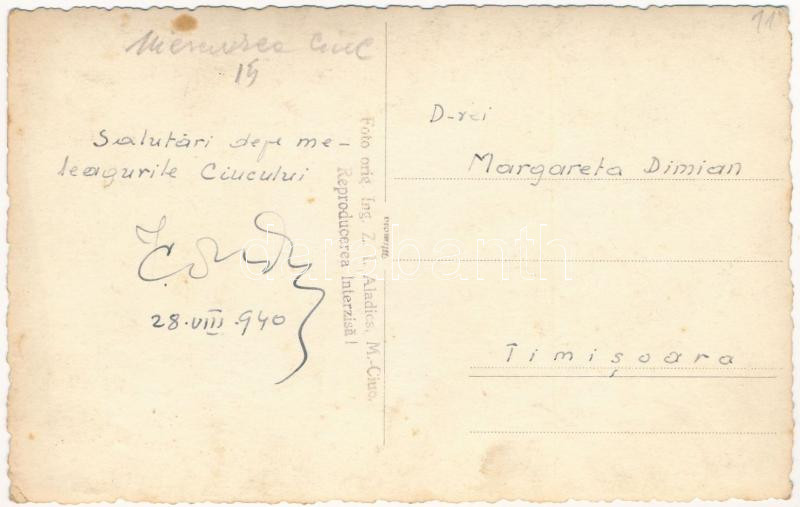 Miercurea Ciuc
15
11
Salutări depe me-
leagurile Ciucului
28.VIII.940
D-rei
Margareta Dimian
Timișoara
Foto orig. Ing. Z. I. Aladics, M.-Ciuc.
Reproducerea Interzisă!
darabanth